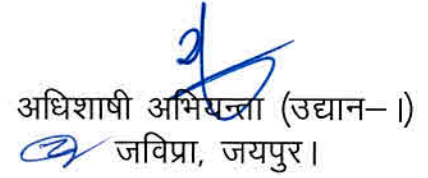 अधिशाषी अभियन्ता (उद्यान–I)
जविप्रा, जयपुर।